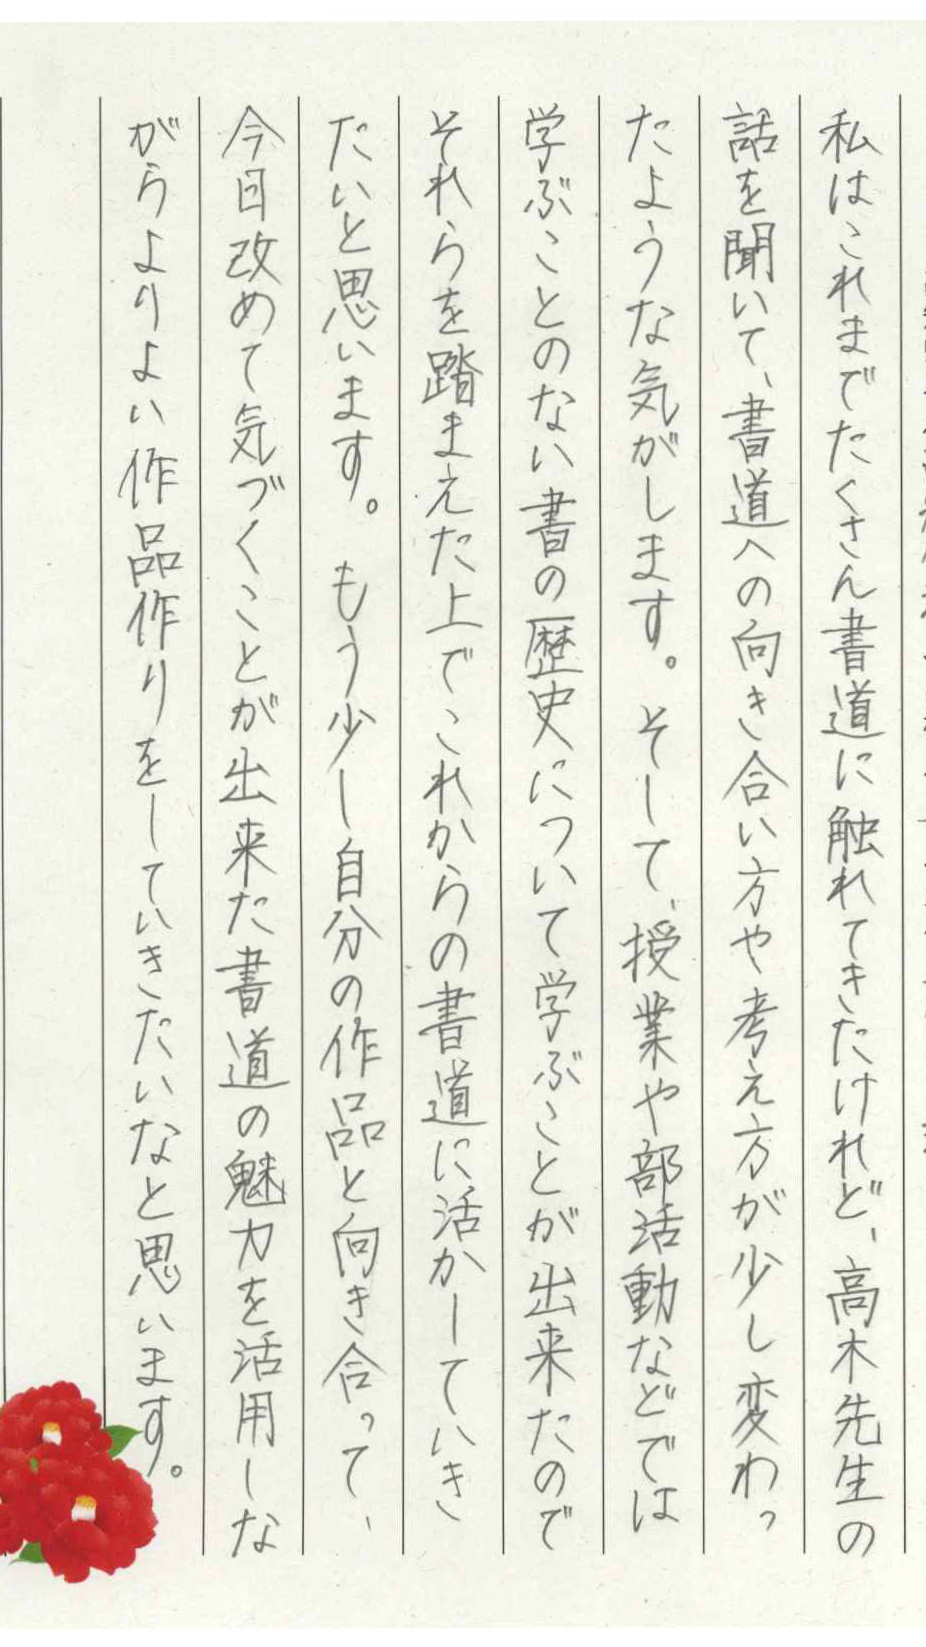 私はこれまでたくさん書道に触れてきたけれど、高木先生の
話を聞いて、書道への向き合い方や考え方が少し変わっ
たような気がします。そして、授業や部活動などでは
学ぶことのない書の歴史について学ぶことが出来たので
それらを踏まえた上でこれからの書道に活かしていき
たいと思います。もう少し自分の作品と向き合って、
今日改めて気づくことが出来た書道の魅力を活用しな
がらよりよい作品作りをしていきたいなと思います。